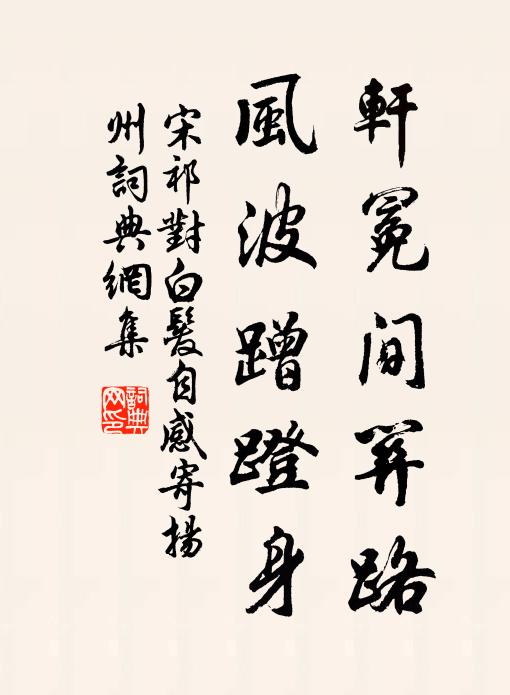 軒冕間關路
風波蹭蹬身
宋祁對白髮自感寄揚
州詞典網集
詞典網印